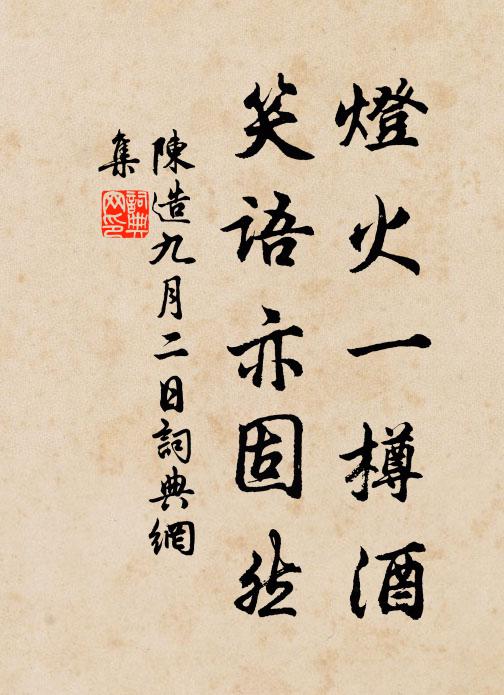 燈火一樽酒
笑語亦固然
陳造九月二日詞典網
集
詞典網印